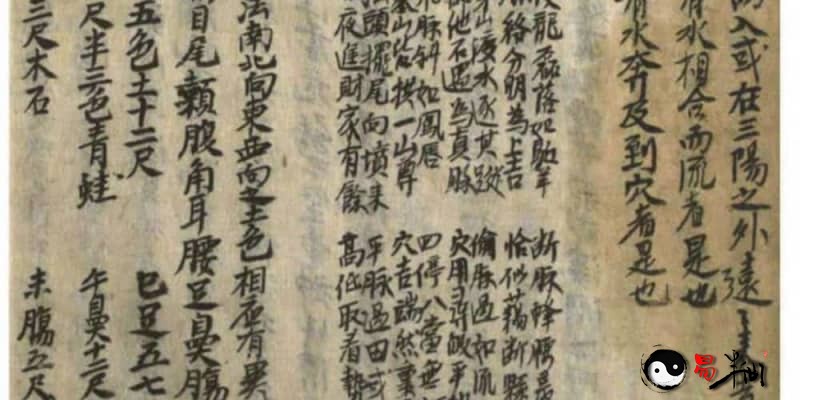 入或在三陽之外遠
有水相合而流者是也
有水奔及到穴者是也
龍磊落如散羊
断脉蜂腰是
络分明為上吉
恰似藕断縣
山渡水逐其蹤
偷脉過如流
他石過為真脉
穴用尋
脉斜如鳳唇
四停八當
山岩拱一山尊
穴吉端然
頭擺尾向墳来
平脉過田或
夜進財家有餘
高低取看勢
法南北向東西向之土色相否有異
目尾頼腹角耳腰足鼻腸
五色土十二尺
巳足五七
尺半三色青蛙
午鼻十二尺
三尺木石
未腸五尺
易半仙